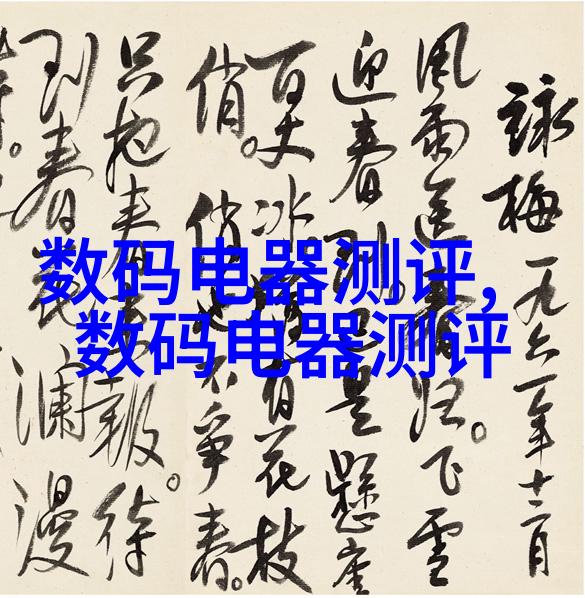 詠梅 一九六一年十二月
風雨送春归。飞雪
迎春到。已是懸崖
百丈冰。犹有花枝
俏。俏也不争春。
只把春来報。待
到春花瀾漫
数码电器测评,
数码电器测评